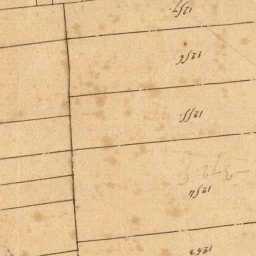 1257.
1256
1255.
1254
1253